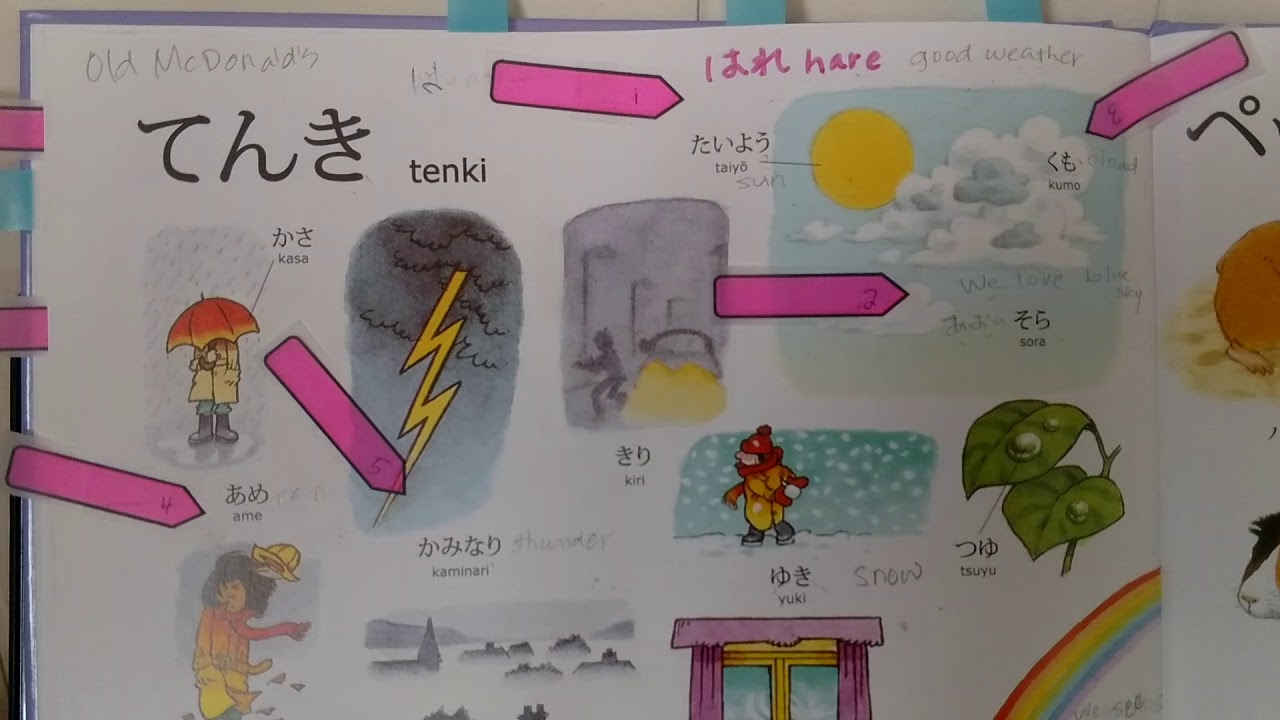 Old McDonald's
は
1
はれ hare good weather
てんき tenki
たいよう
taiyō
sun
3
くも cloud
kumo
ペ
かさ
kasa
2
We love blue
sky
あおい そら
sora
5
4
あめ rain
ame
きり
kiri
かみなり thunder
kaminari
ゆき snow
yuki
つゆ
tsuyu
We see